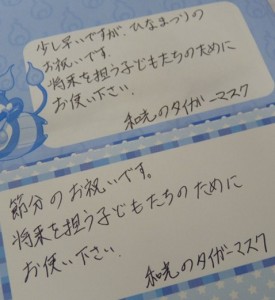 少し早いですが、ひなまつりの
お祝いです。
将来を担う子どもたちのために
お使い下さい。
和光のタイガーマスク
節分のお祝いです。
将来を担う子どもたちのために
お使い下さい.
和光のタイガーマスク